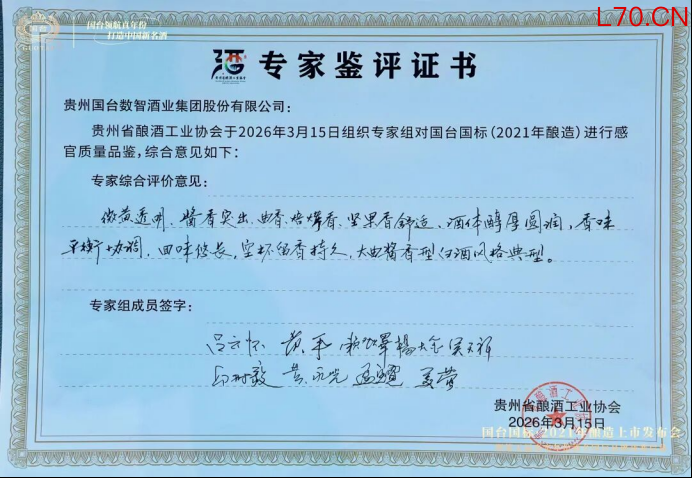 国台领航真年份
L70.CN
打造中国新名酒
酒 专家鉴评证书
贵州国台数智酒业集团股份有限公司：
贵州省酿酒工业协会于2026年3月15日组织专家组对国台国标（2021年酿造）进行感
官质量品鉴，综合意见如下：
专家综合评价意见：
微黄透明、酱香突出、曲香、焙烤香、坚果香舒适、酒体醇厚圆润，香味
平衡协调，回味悠长，空杯留香持久，大曲酱香型白酒风格典型。
专家组成员签字：
吕云怀
黄永光
贵州省酿酒工业协会
2026年3月15日
国台国标·2021年酿造上市发布会